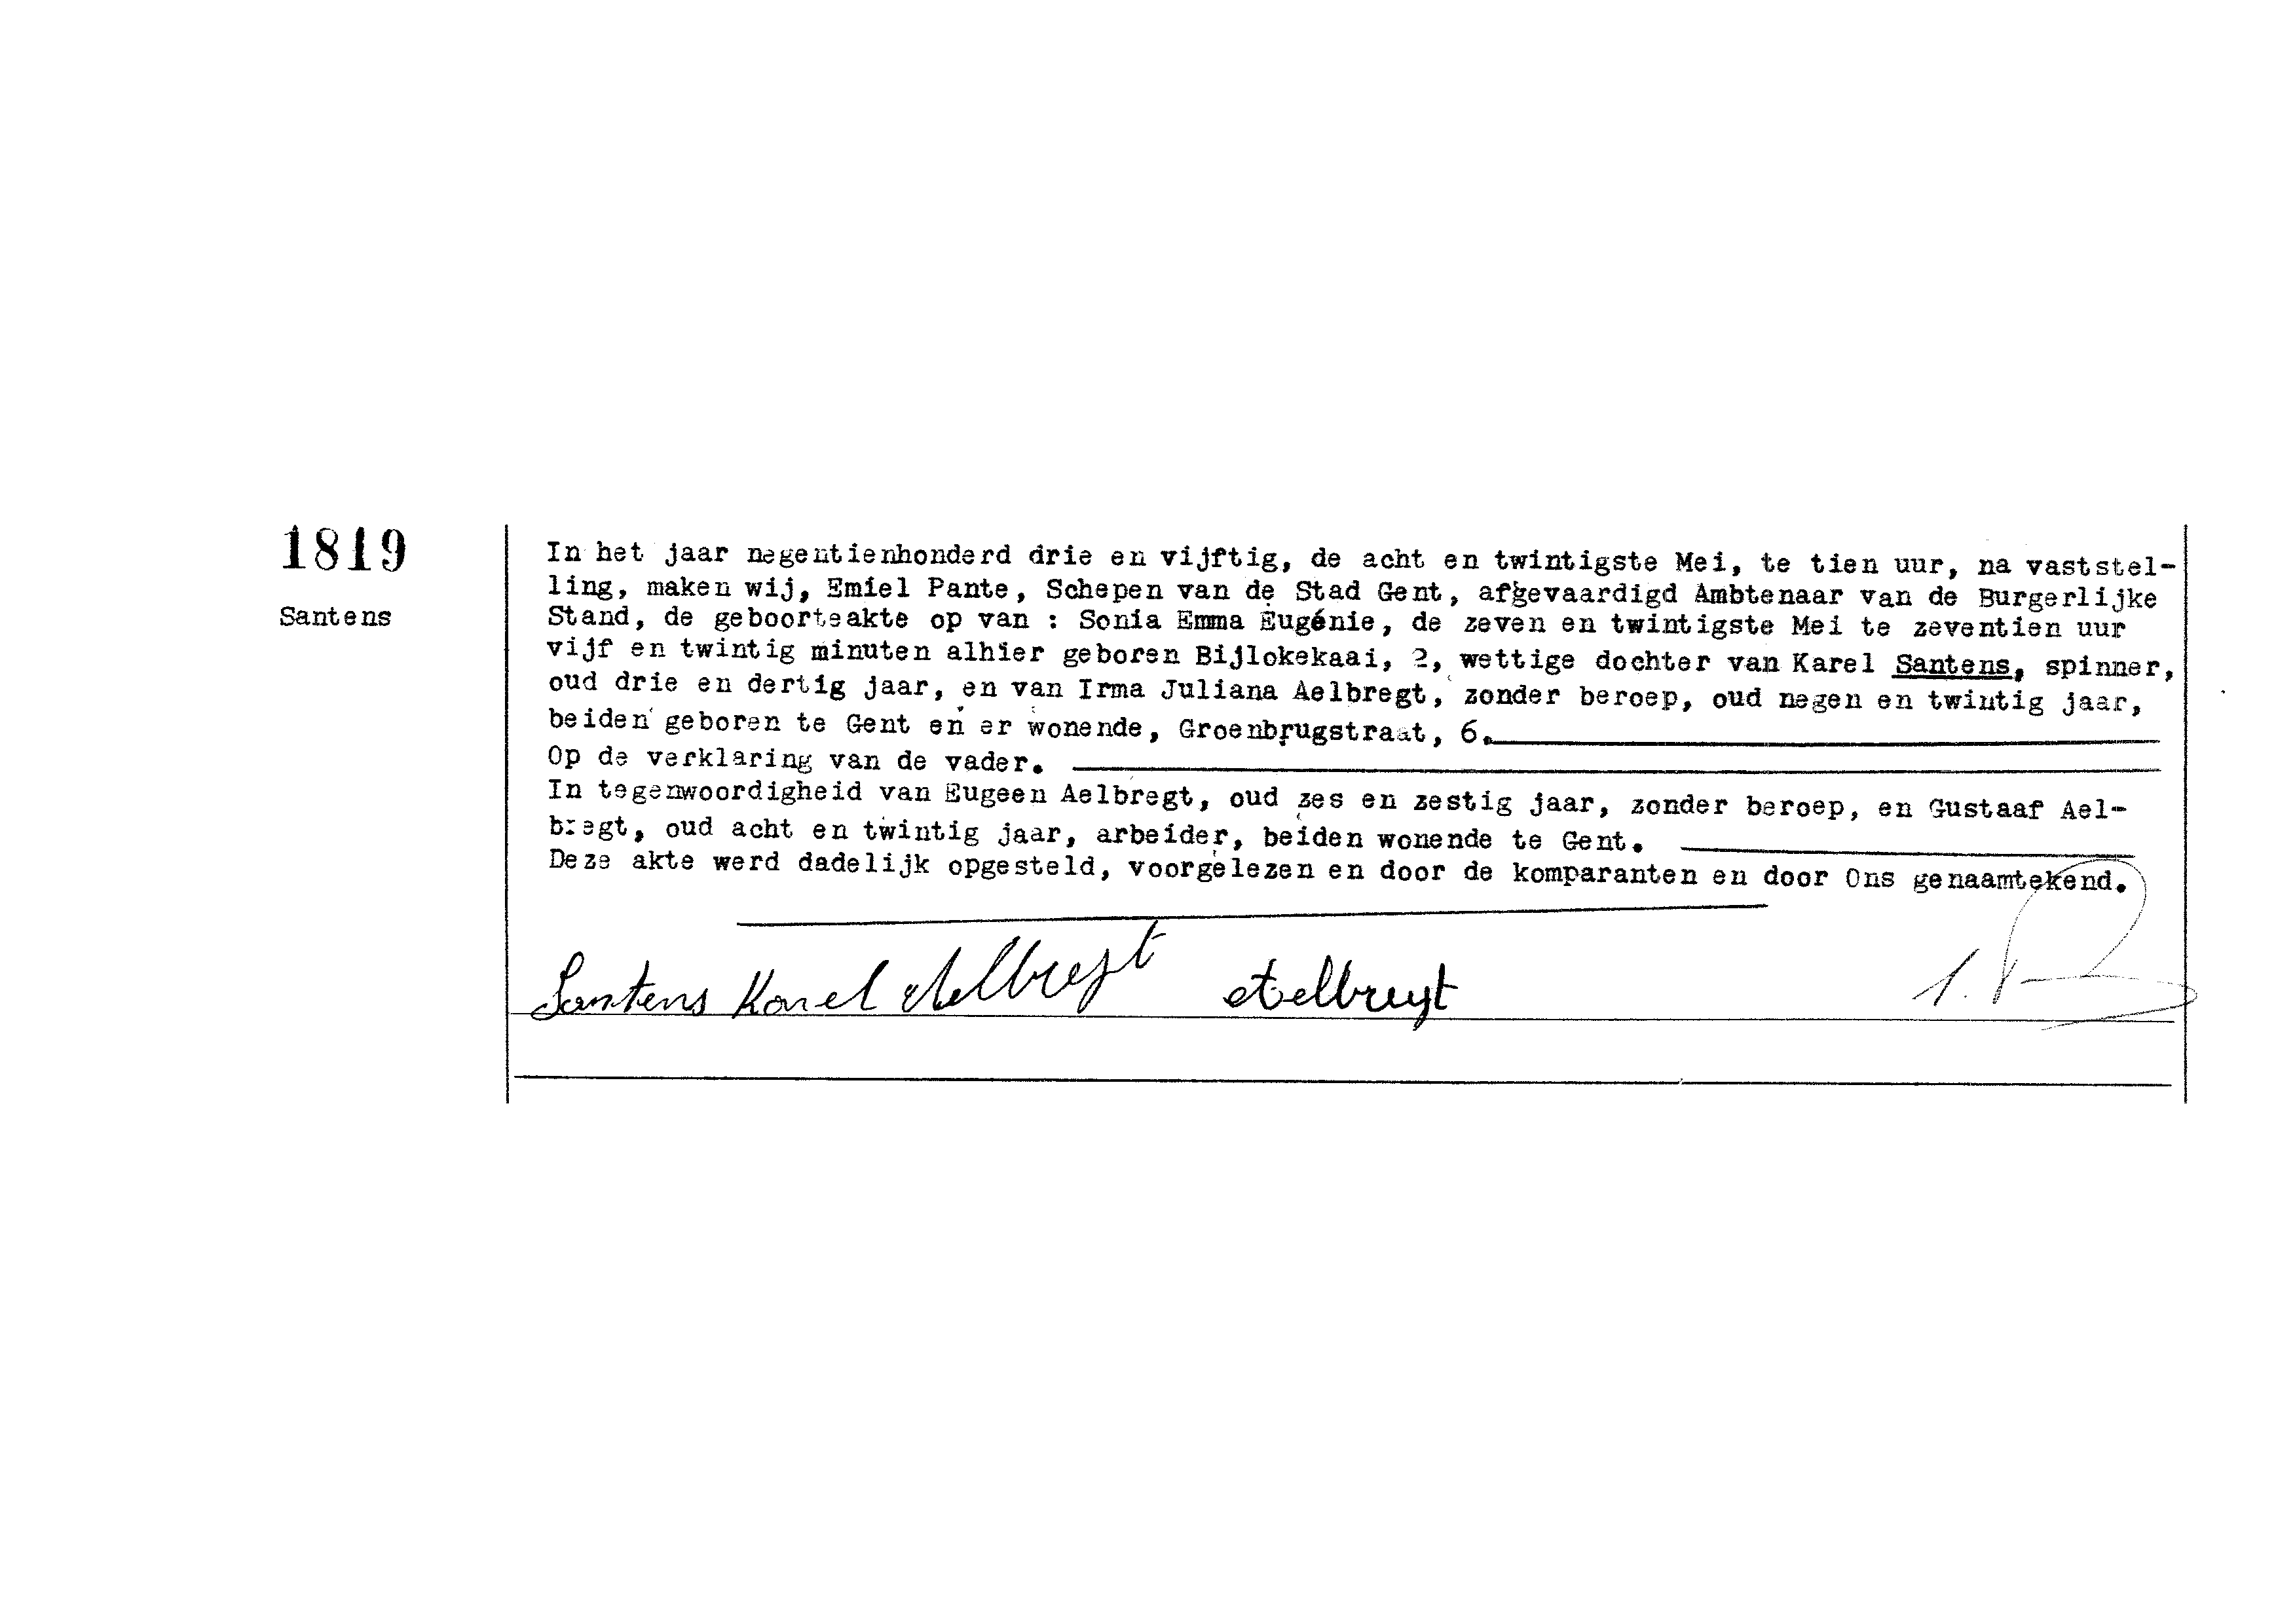 1819
Santens
In het jaar negentienhonderd drie en vijftig, de acht en twintigste Mei, te tien uur, na vaststel-
ling, maken wij, Emiel Pante, Schepen van de Stad Gent, afgevaardigd Ambtenaar van de Burgerlijke
Stand, de geboorteakte op van : Sonia Emma Eugénie, de zeven en twintigste Mei te zeventien uur
vijf en twintig minuten alhier geboren Bijlokekaai, 2, wettige dochter van Karel Santens, spinner,
oud drie en dertig jaar, en van Irma Juliana Aelbregt, zonder beroep, oud negen en twintig jaar,
beiden geboren te Gent en er wonende, Groenbrugstraat, 6.
Op de verklaring van de vader.
In tegenwoordigheid van Eugeen Aelbregt, oud zes en zestig jaar, zonder beroep, en Gustaaf Ael-
bregt, oud acht en twintig jaar, arbeider, beiden wonende te Gent.
Deze akte werd dadelijk opgesteld, voorgelezen en door de komparanten en door Ons genaamtekend.
Santens Karel Aelbregt Aelbregt